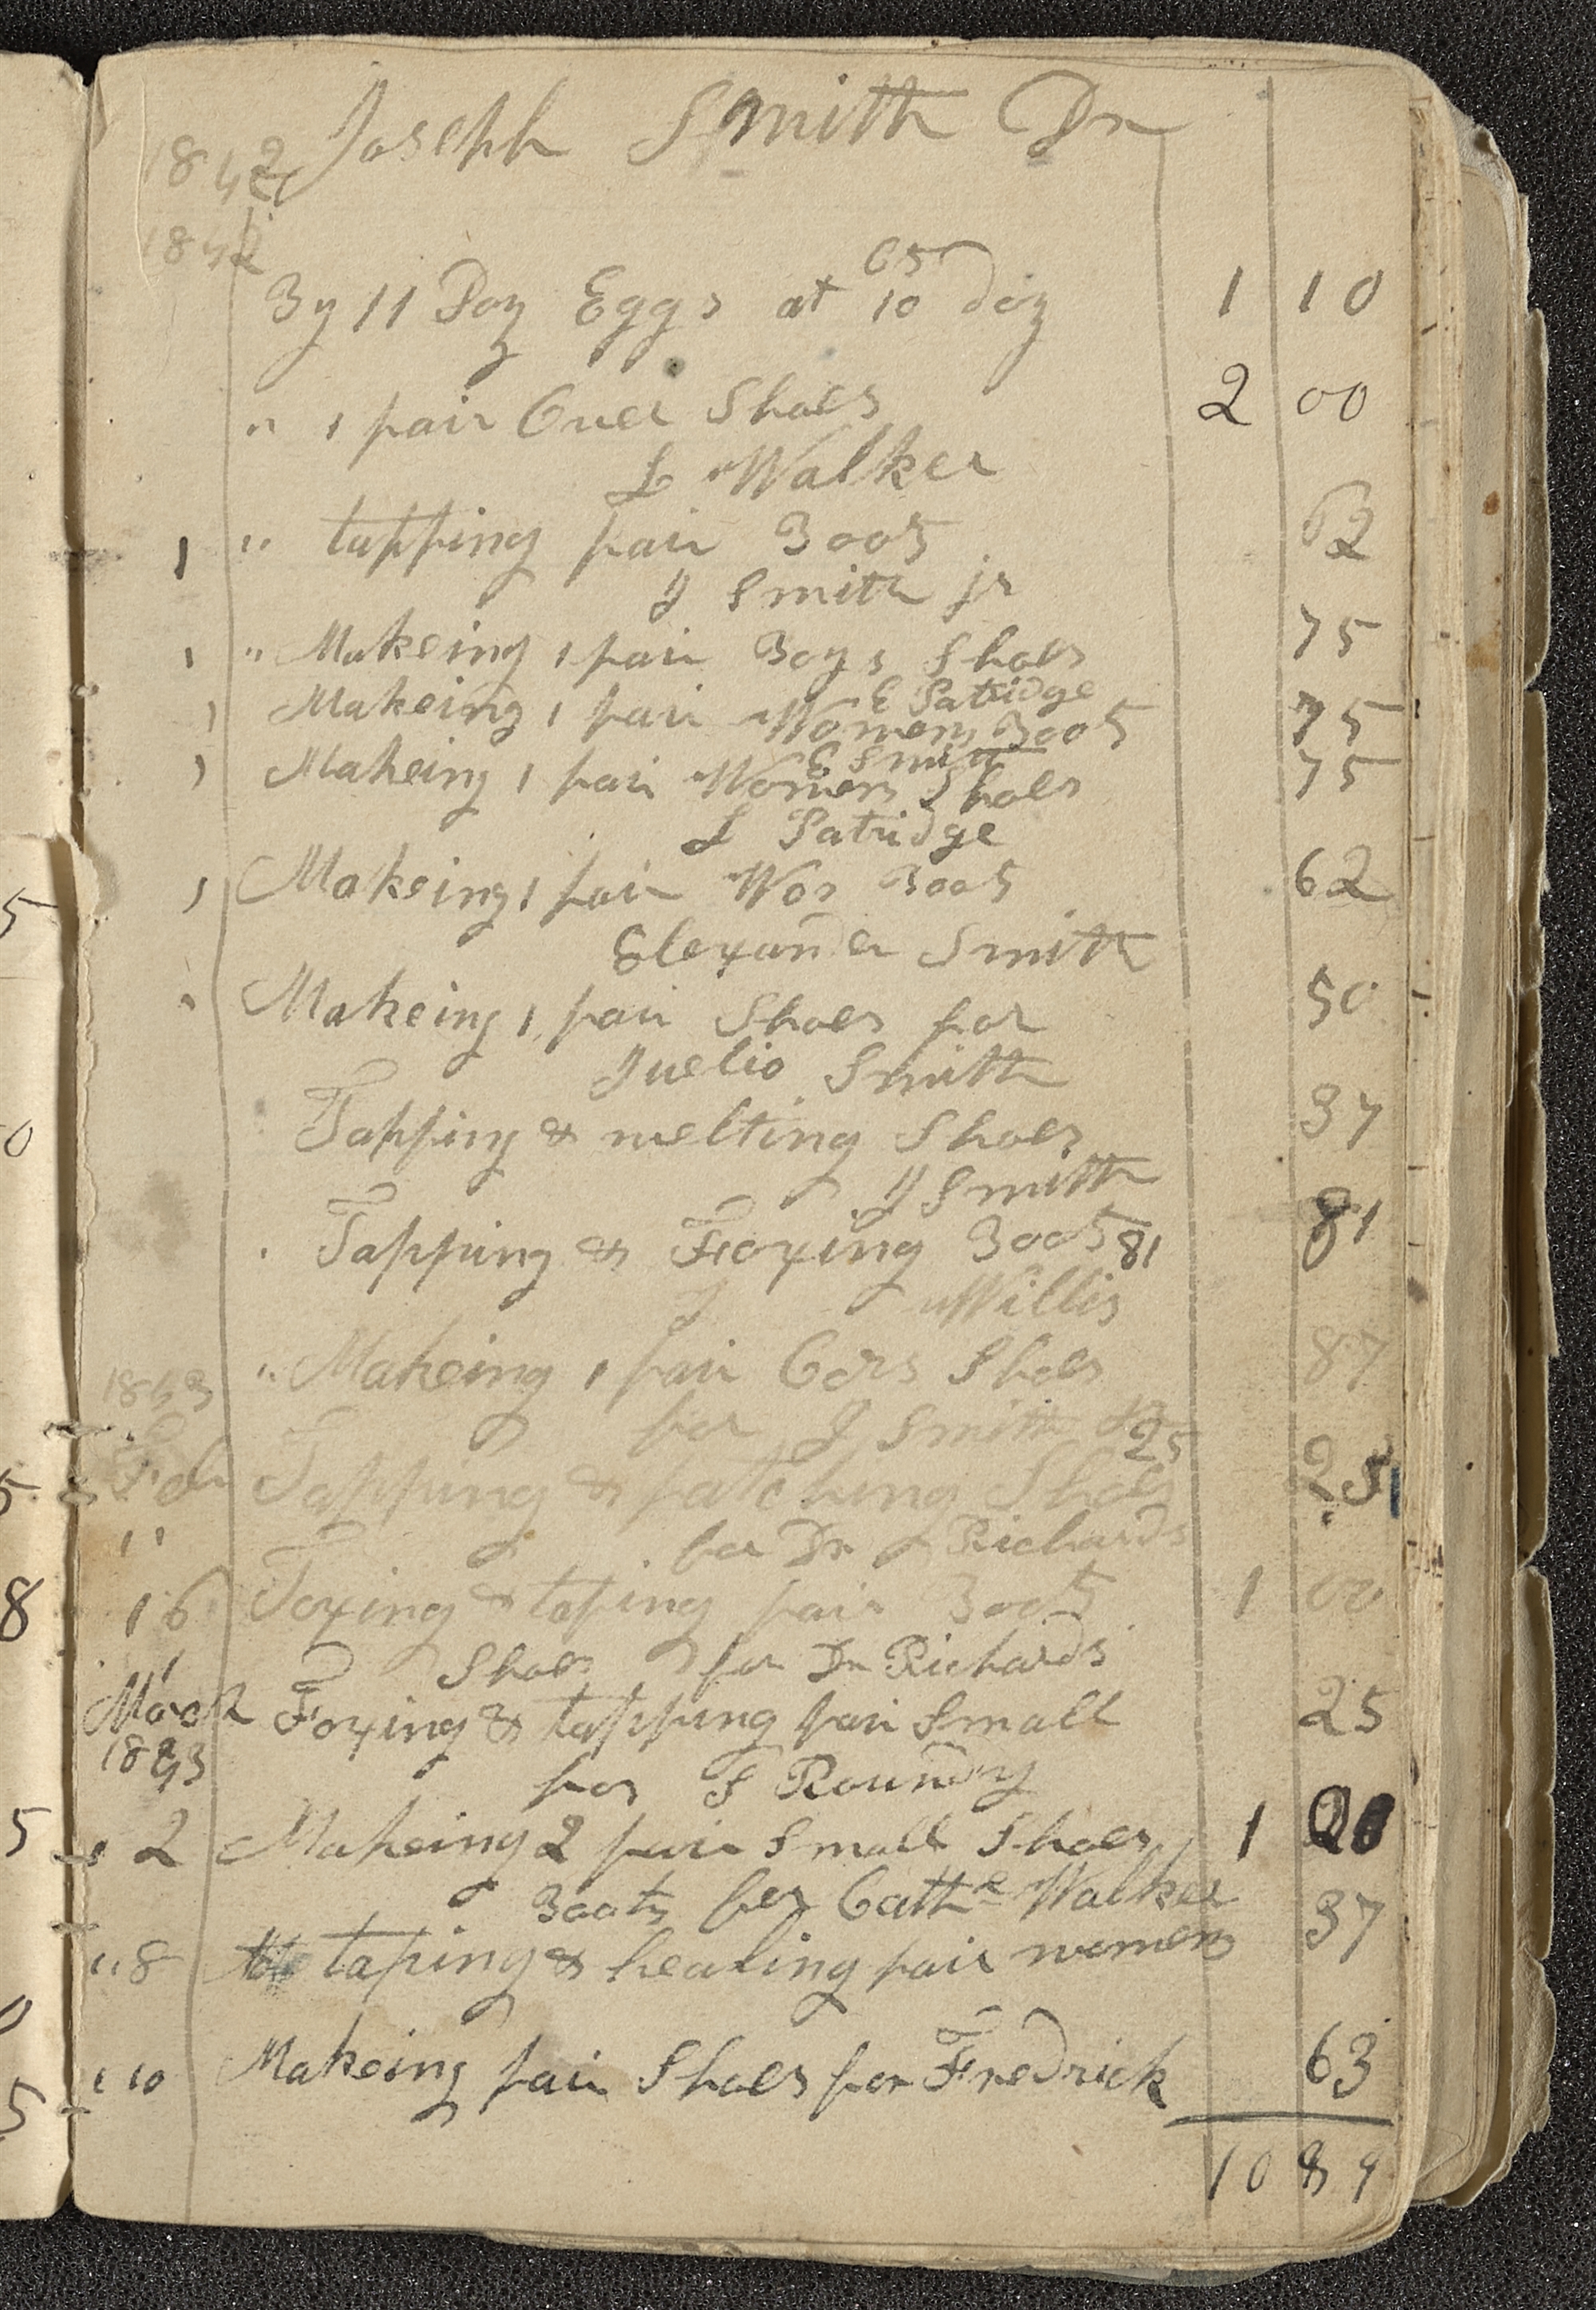 Joseph Smith Dr
1842
1842
cts
By 11 Doz Eggs at 10 doz 1 10
" 1 pair Over Shoes 2 00
L Walker
1 " tapping pair Boots 62
J Smith jr
1 " Makeing 1 pair Boys Shoes 75
E Patridge
1 Makeing 1 pair Womens Boots 75
E Smith
1 Makeing 1 pair Womens Shoes 75
L Patridge
1 Makeing 1 pair Wos Boots 62
Elexander Smith
" Makeing 1 pair Shoes for 50
Juelio Smith
Tapping & welting Shoes 37
J Smith
Tapping & Foxing Boots 81 81
J Willis
" Makeing 1 pair Cors Shoes 87
1843
for J Smith
25
Feb Tapping & patching Shoes 25
" for Dr Richards
16 Foxing & taping pair Boots 1 00
Shoes for Dr Richards
March Foxing & tapping pair Small 25
1843
for S Roundy
" 2 Makeing 2 pair Small Shoes 1 20
Boots for Cathe Walker
" 8 taping & healing pair womens 37
" 10 Makeing pair Shoes for Fredrick 63
10 89
5
0
5
8
5
0
5